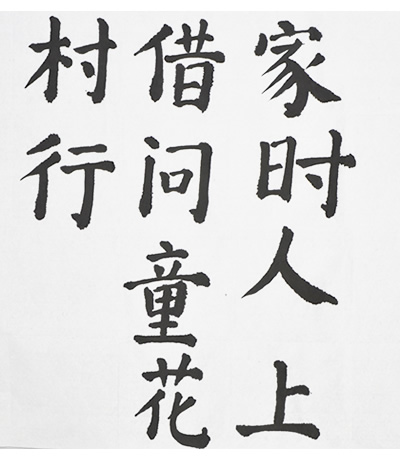 家时人上
借问童花
村行